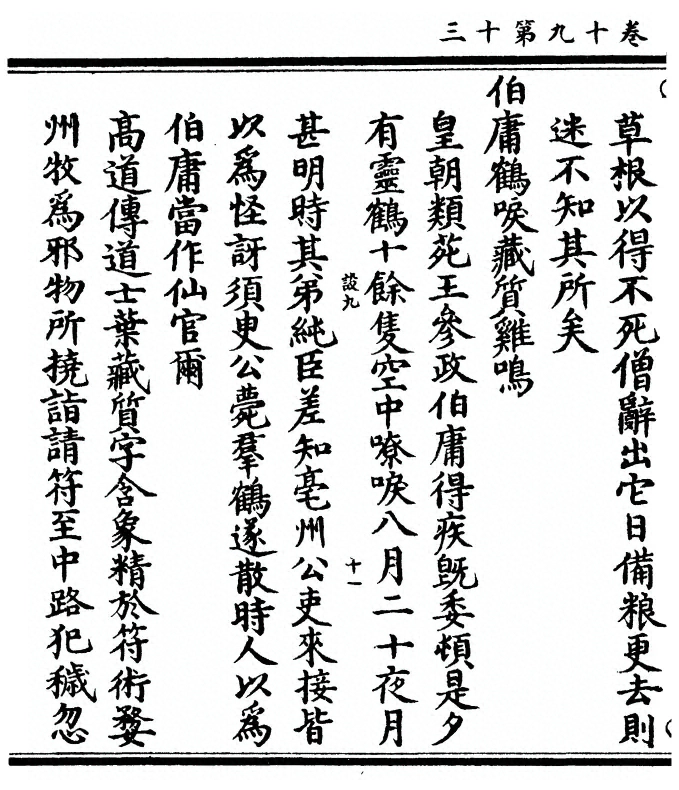 三十第九十卷
草根以得不死僧辭出它日備粮更去則
迷不知其所矣
伯庸鶴唳藏質雞鳴
皇朝類苑王參政伯庸得疾旣委頓是夕
有靈鶴十餘隻空中嘹唳八月二十夜月
設九
十一
甚明時其弟純臣差知亳州公吏來接皆
以爲怪訝須臾公薨羣鶴遂散時人以爲
伯庸當作仙官爾
高道傳道士葉藏質字含象精於符術婺
州牧爲邪物所撓詣請符至中路犯穢忽